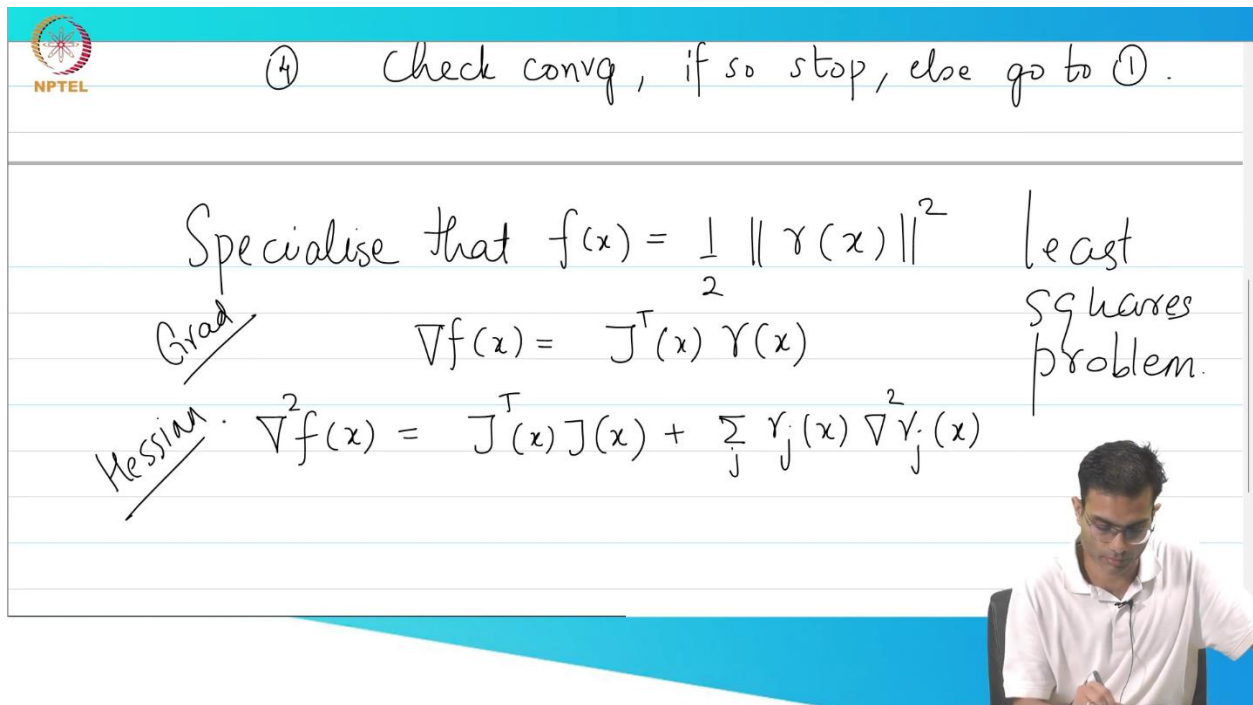 NPTEL
④ Check convg, if so stop, else go to ①.
Specialise that f(x) = 1/2 ‖r(x)‖² least squares problem.
Grad ∇f(x) = Jᵀ(x) r(x)
Hessian. ∇²f(x) = Jᵀ(x)J(x) + Σⱼ rⱼ(x) ∇²rⱼ(x)